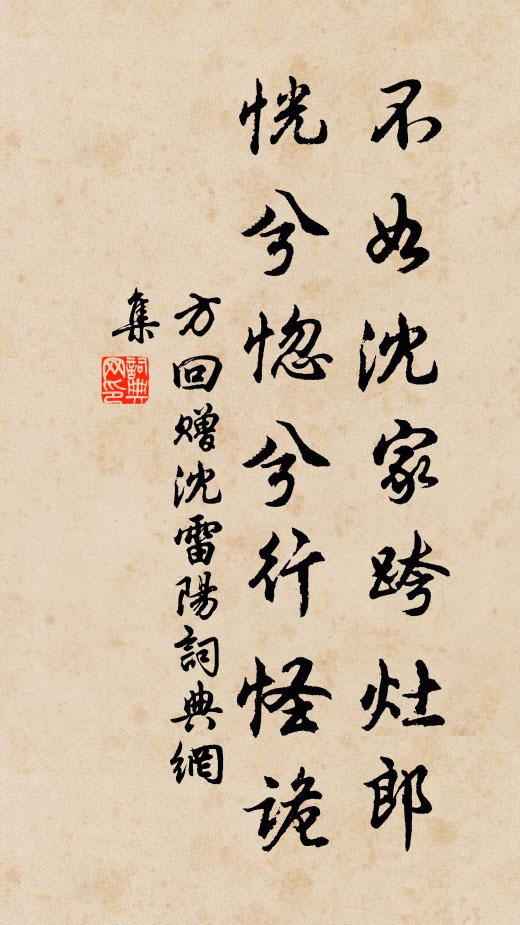 不如沈家跨灶郎
恍兮惚兮行怪诡
方回赠沈雷陽詞典網
集
詞典网印